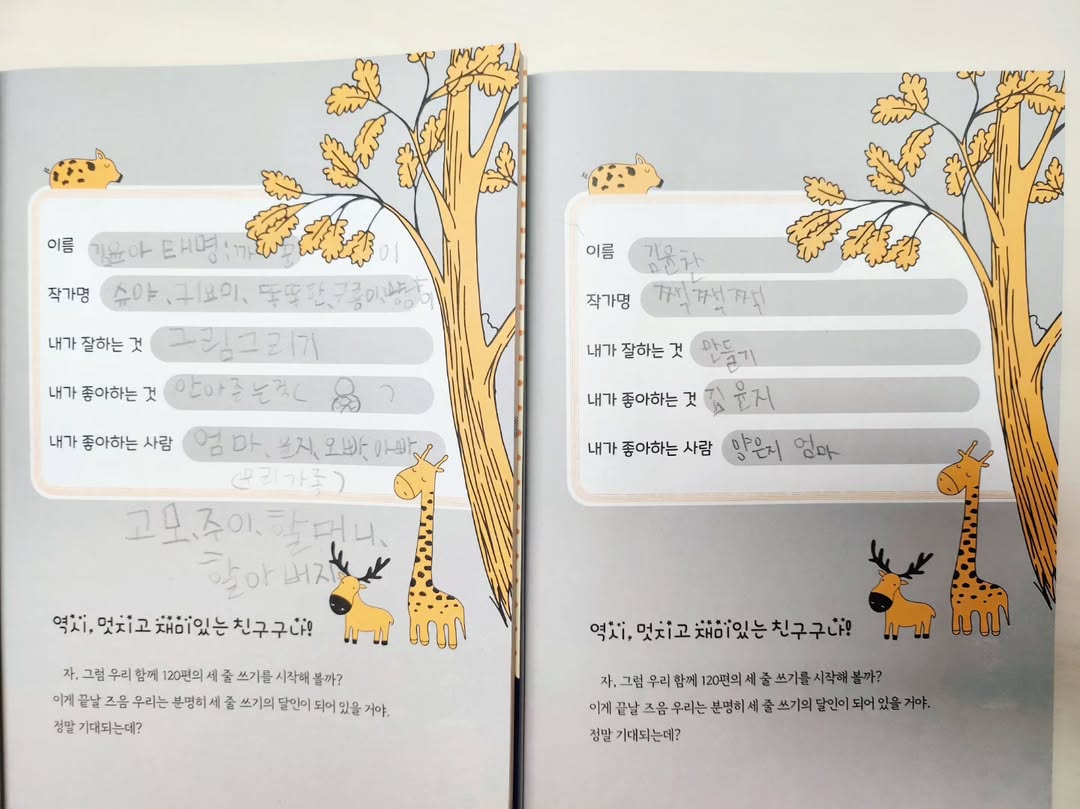 이름 김윤아 태명:
작가명 슈야, 귀요미, 또또판, 구름이,
내가 잘하는 것 그림그리기
내가 좋아하는 것 안아주는것( )
내가 좋아하는 사람 엄마, 윤지, 오빠, 아빠
(우리가족)
고모, 주이, 할머니,
할아버지
역시, 멋지고 재미있는 친구구나!
자, 그럼 우리 함께 120편의 세 줄 쓰기를 시작해 볼까?
이게 끝날 즈음 우리는 분명히 세 줄 쓰기의 달인이 되어 있을 거야.
정말 기대되는데?
이름 김윤찬
작가명 쩍쩍쩍
내가 잘하는 것 만들기
내가 좋아하는 것 김윤지
내가 좋아하는 사람 양은지 엄마
역시, 멋지고 재미있는 친구구나!
자, 그럼 우리 함께 120편의 세 줄 쓰기를 시작해 볼까?
이게 끝날 즈음 우리는 분명히 세 줄 쓰기의 달인이 되어 있을 거야.
정말 기대되는데?